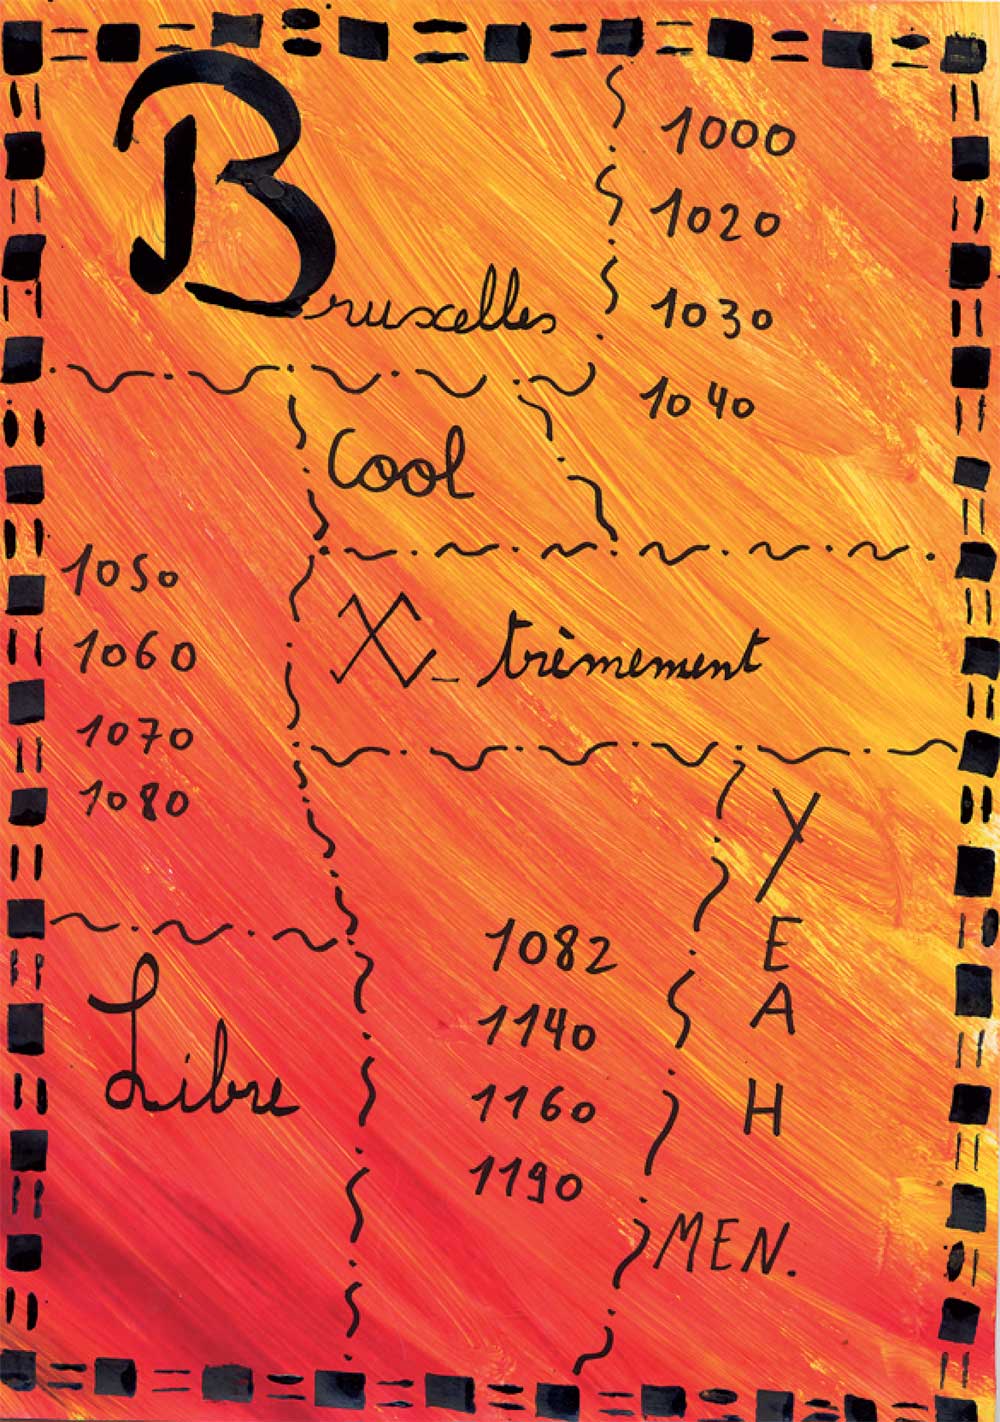 Bruxelles
1000
1020
1030
1040
Cool
1050
1060
1070
1080
X-trèmement
Y
E
A
H
MEN.
1082
1140
1160
1190
Libre